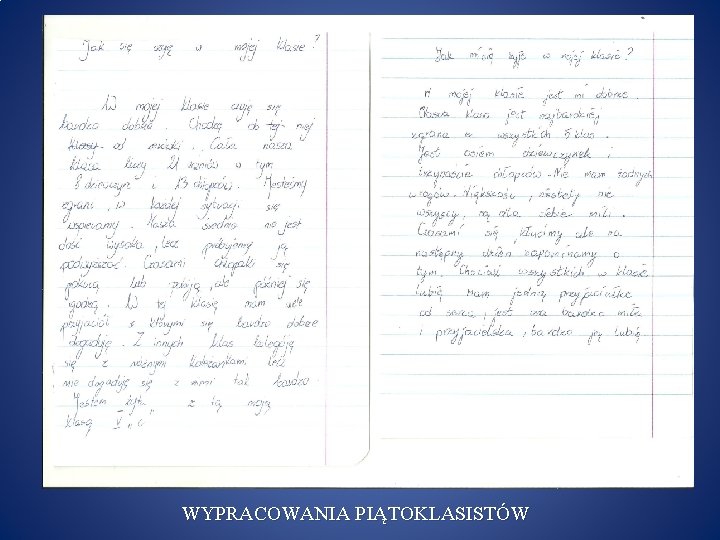 Jak się czuję w mojej klasie?
W mojej klasie czuję się
bardzo dobrze. Chodzę do tej mojej
klasy od zerówki. Cała nasza
klasa liczy 21 uczniów w tym
8 dziewczyn i 13 chłopców. Jesteśmy
zgrani, w każdej sytuacji się
wspieramy. Nasza średnia na jest
dość wysoka, lecz próbujemy ją
podwyższać. Czasami chłopaki się
pokłócą lub pobiją, ale później się
godzą. W tej klasie mam
przyjaciół z którymi się bardzo dobrze
dogaduję. Z innych klas koleguję
się z różnymi koleżankami lecz
nie dogaduję się z nimi tak bardzo.
Jestem z tą moją
klasą V "c"
Jak mi się żyje w mojej klasie?
W mojej klasie jest mi dobrze.
Nasza klasa jest najbardziej
zgrana z wszystkich 5 klas.
Jest osiem dziewczynek i
trzynaście chłopców. Nie mam żadnych
wrogów. Większość, niestety nie
wszyscy, są dla siebie mili.
Czasami się kłócimy ale na
następny dzień zapominamy o
tym. Chociaż wszystkich w klasie
lubię mam jedną przyjaciółkę
od serca, jest ona bardzo miła
i przyjacielska, bardzo ją lubię
WYPRACOWANIA PIĄTOKLASISTÓW